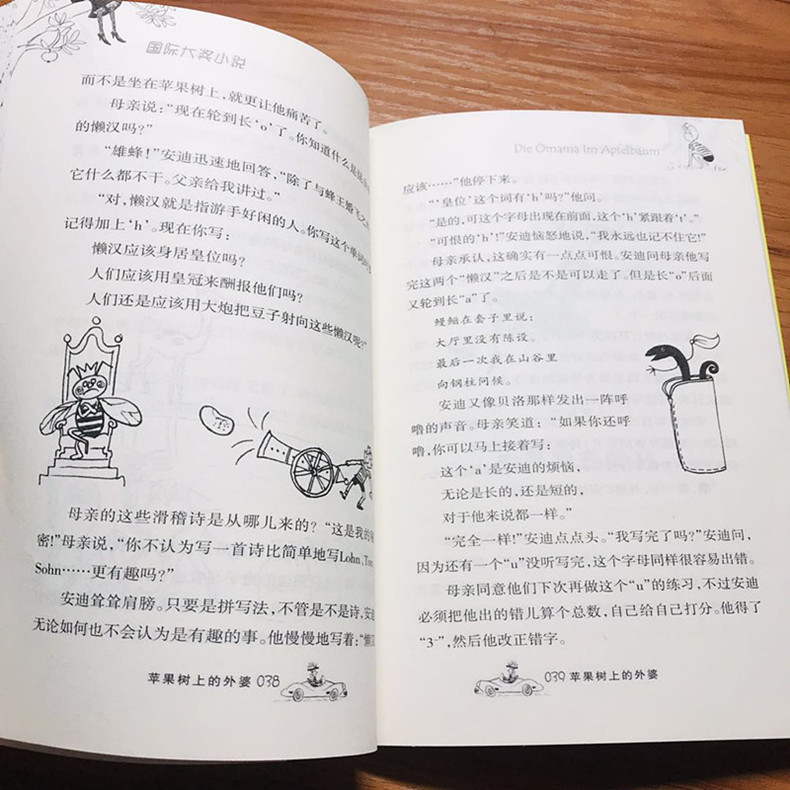 国际大奖小说
而不是坐在苹果树上，就更让他痛苦了。
母亲说：“现在轮到长‘o’了。你知道什么是
的懒汉吗？”
“雄蜂！”安迪迅速地回答，“除了与蜂王婚飞之
它什么都不干。父亲给我讲过。”
“对，懒汉就是指游手好闲的人。你写这个单词
记得加上‘h’。现在你写：
懒汉应该身居皇位吗？
人们应该用皇冠来酬报他们吗？
人们还是应该用大炮把豆子射向这些懒汉呢？”
母亲的这些滑稽诗是从哪儿来的？“这是我的
密！”母亲说，“你不认为写一首诗比简单地写Lohn,
Sohn……更有趣吗？”
安迪耸耸肩膀。只要是拼写法，不管是不是诗，安
无论如何也不会认为是有趣的事。他慢慢地写着：“懒
苹果树上的外婆 038
Die Omama im Apfelbaum
应该……”他停下来。
“‘皇位’这个词有‘h’吗？”他问。
“是的，可这个字母出现在前面，这个‘h’紧跟着‘t’。”
“可恨的‘h’！”安迪恼怒地说，“我永远也记不住它！”
母亲承认，这确实有一点点可恨。安迪问母亲他写
完这两个“懒汉”之后是不是可以走了。但是长“o”后面
又轮到长“a”了。
鳗鲡在套子里说：
大厅里没有陈设。
最后一次我在山谷里
向钢柱问候。
安迪又像贝洛那样发出一阵呼
噜的声音。母亲笑道：“如果你还呼
噜，你可以马上接着写：
这个‘a’是安迪的烦恼，
无论是长的，还是短的，
对于他来说都一样。”
“完全一样！”安迪点点头。“我写完了吗？”安迪问，
因为还有一个“u”没听写完，这个字母同样很容易出错。
母亲同意他们下次再做这个“u”的练习，不过安迪
必须把他出的错儿算个总数，自己给自己打分。他得了
“3-”，然后他改正错字。
039 苹果树上的外婆